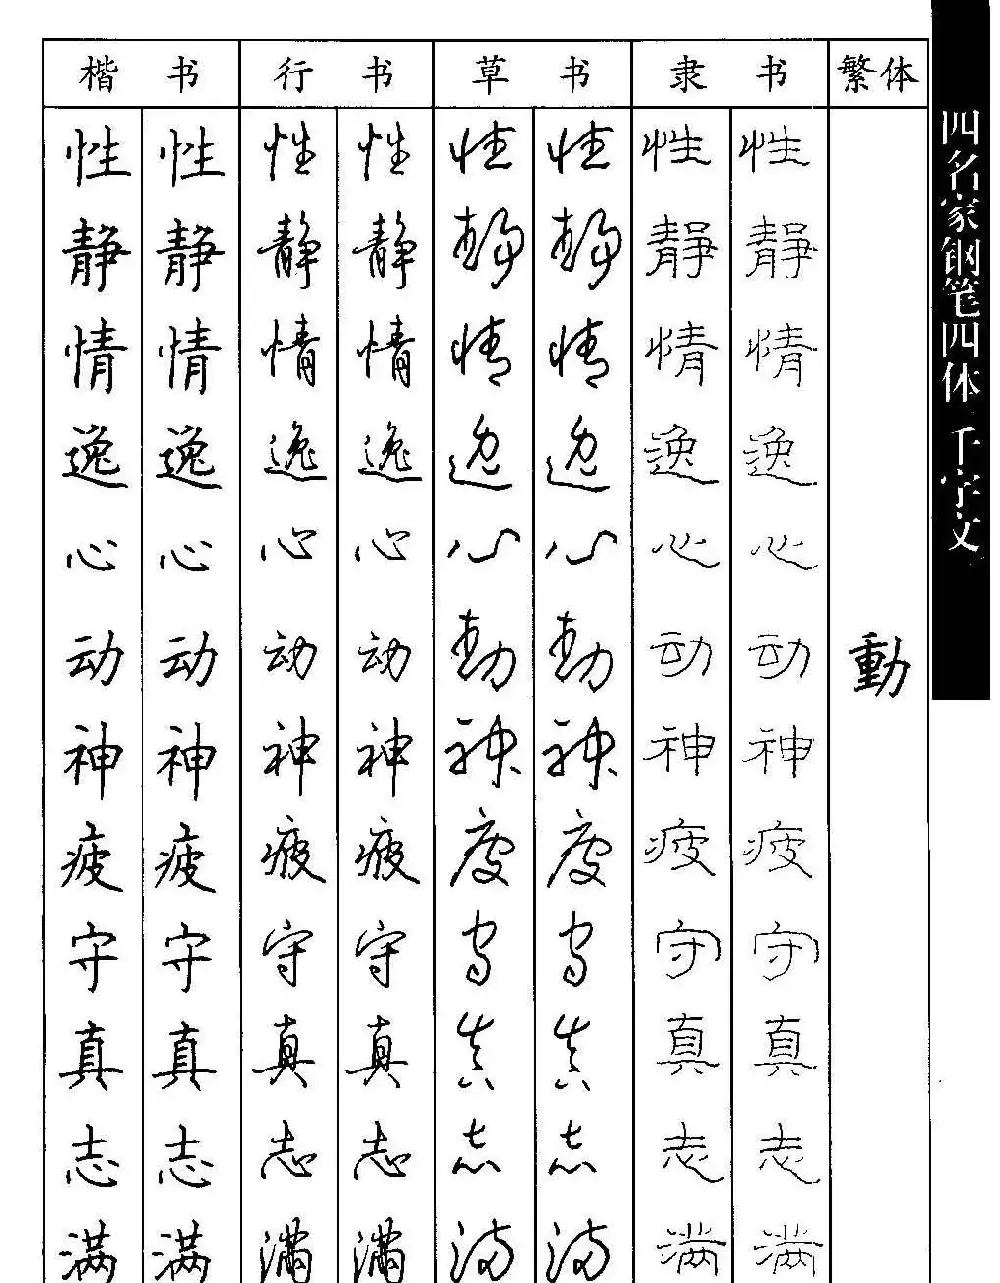 楷书 行书 草书 隶书 繁体
性 性 性 性 性 性 性 性
静 静 静 静 静 静 静 静
情 情 情 情 情 情 情 情
逸 逸 逸 逸 逸 逸 逸 逸
心 心 心 心 心 心 心 心
动 动 动 动 动 动 动 动 動
神 神 神 神 神 神 神 神
疲 疲 疲 疲 疲 疲 疲 疲
守 守 守 守 守 守 守 守
真 真 真 真 真 真 真 真
志 志 志 志 志 志 志 志
满 满 满 满 满 满 满 满
四名家钢笔四体千字文